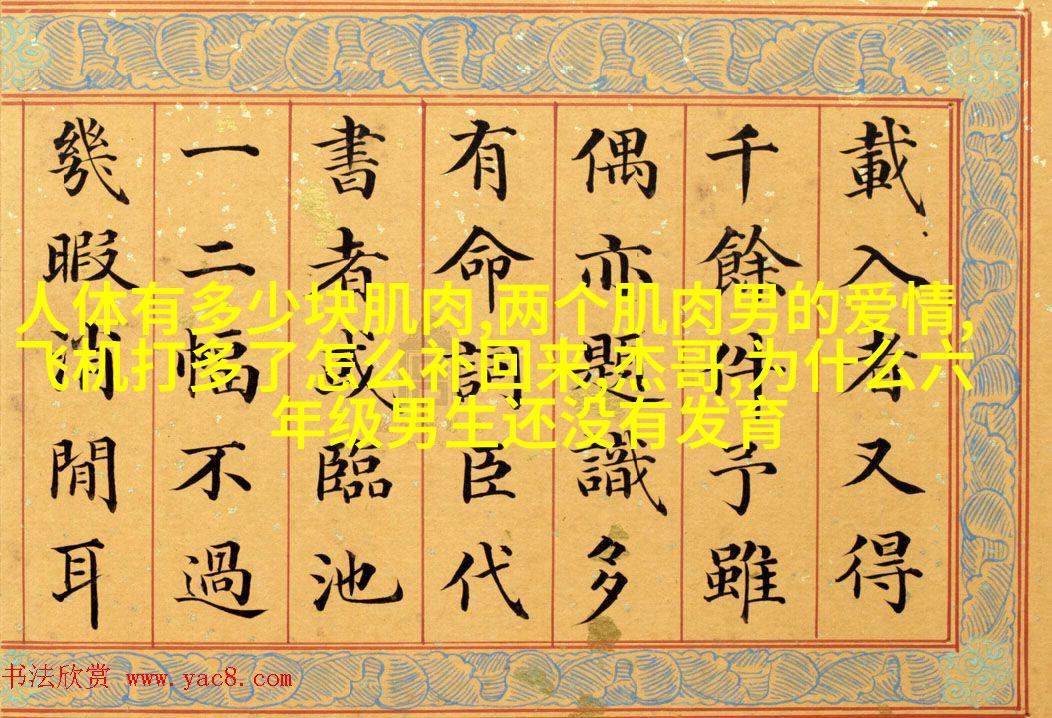 載入者又得
千餘件予雖
偶亦題識多
有命詞臣代
書者或臨池
一二幅不過
幾暇消閒耳
人体有多少块肌肉,两个肌肉男的爱情,
飞机打多了怎么补回来,杰哥,为什么六
年级男生还没有发育
书法欣赏 www.yac8.com